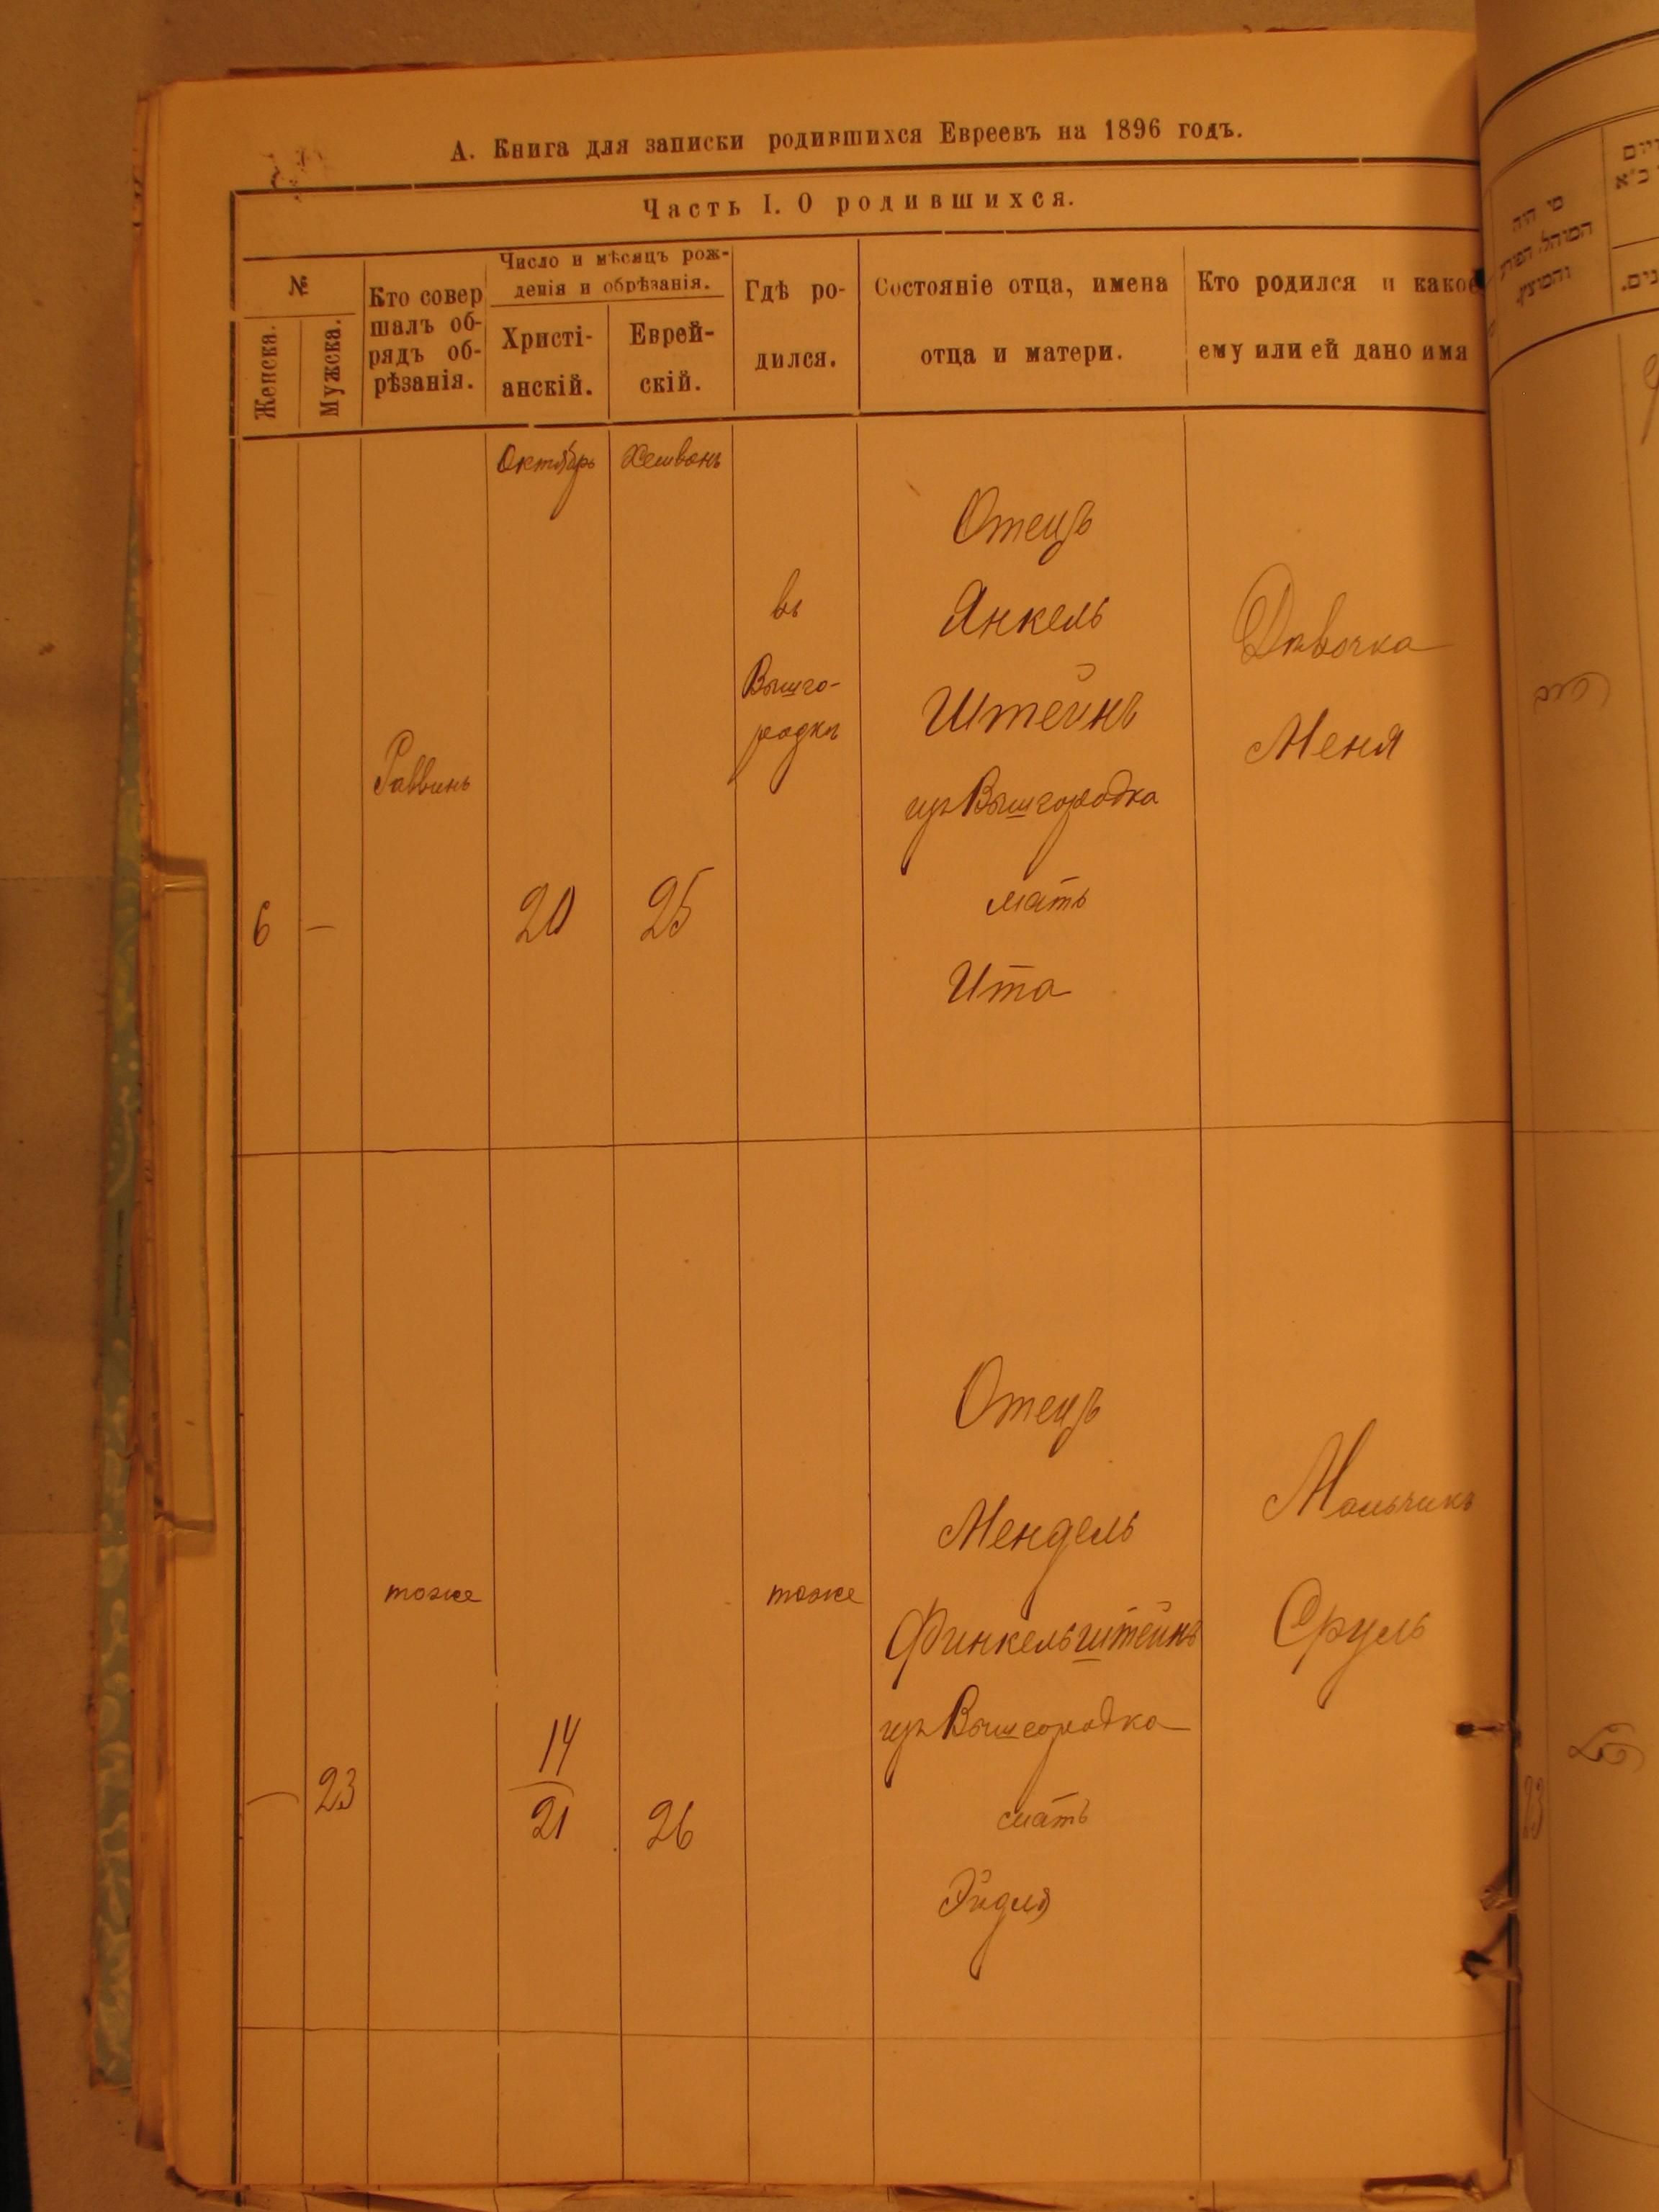 А. Книга для записки родившихся Евреевъ на 1896 годъ.
Часть I. О родившихся.
№
Женска.
Мужска.
Кто совер
шалъ об-
рядъ об-
рѣзанія.
Число и мѣсяцъ рож-
денія и обрѣзанія.
Христі-
анскій.
Еврей-
скій.
Гдѣ ро-
дился.
Состояніе отца, имена
отца и матери.
Кто родился и какое
ему или ей дано имя
Октябрь
Хешвонъ
6
—
Раввинъ
20
25
въ
Вышго-
родкѣ
Отецъ
Янкель
Штейнъ
изъ Вышгородка
мать
Ита
Дѣвочка
Меня
—
23
тоже
14
21
26
тоже
Отецъ
Мендель
Финкельштейнъ
изъ Вышгородка
мать
Эйдля
Мальчикъ
Сруль
מי היה
המוהל הפורע
והמוצץ.